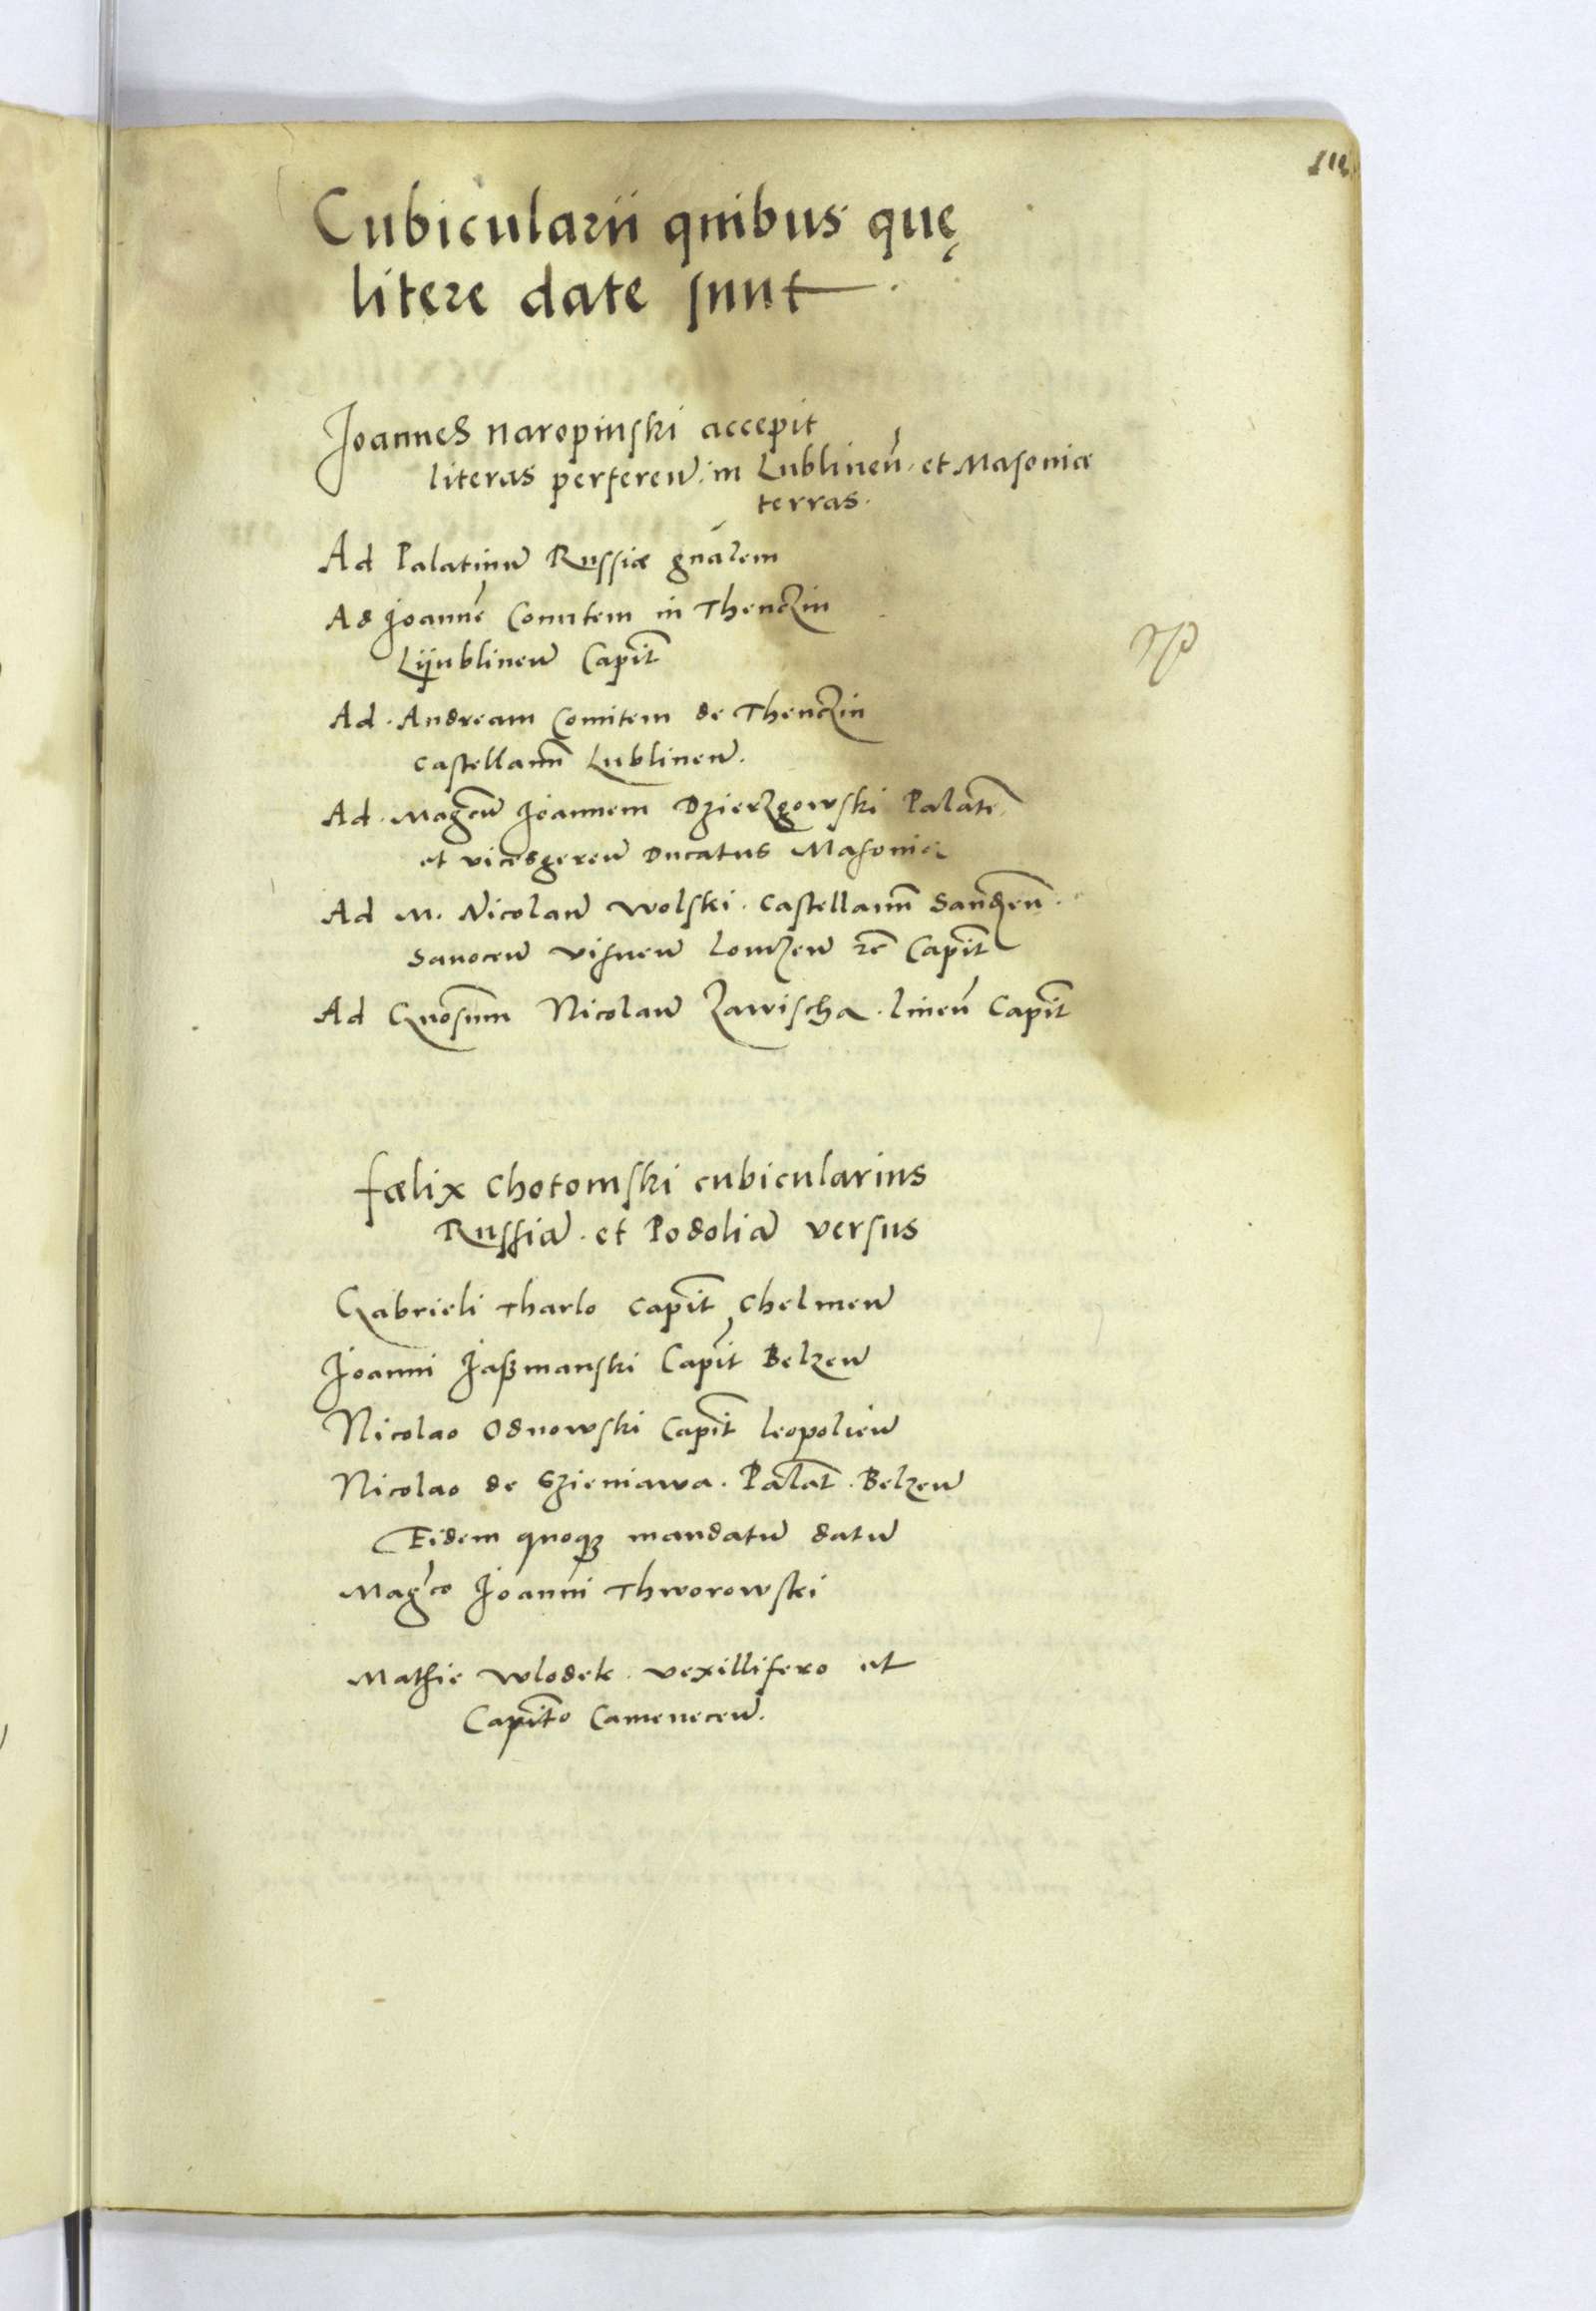 Cubicularii quibus quę
litere date sunt
Joannes Naropinski accepit
literas perferen̄. in Lublinen̄. et Masoniæ
terras.
Ad Palatinū Russiæ gn̄alem
Ad Joannē Comitem in Thenczin
Lyublinen̄ Capit̄
Ad. Andream Comitem de Thenczin
castellanū Lublinen̄.
Ad. Mag̅cū Joannem Dzierzgowski Palatē.
et vicesgeren̄ Ducatus Masoniæ
Ad M. Nicolaū Wolski. Castellanū Sandzen̄.
Sanocen̄ Visnen̄ Lomzen̄ Capit̄
Ad G̅nosum Nicolaū Zawischa. linen̄ Capit̄
Fœlix Chotomski cubicularius
Russiā. et Podoliā versus
Gabrieli Tharlo Capit̄ Chelmen̄
Joanni Jaßmanski Capit̄ Belzen̄
Nicolao Odnowski Capit̄ leopolien̄
Nicolao de Szieniawa. Palat̄. Belzen̄
Eidem quoqꝫ mandatū datū
Mag̅co Joanni Thworowski
Mathie Wlodek. vexillifero et
Capit̄o Camenecen̄.